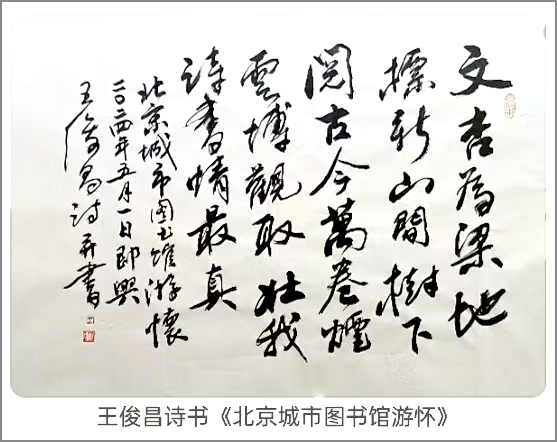 文杏為梁地
標新山間樹下
閱古今萬卷煙
雲博觀取壮我
诗書情最真
北京城市图书馆游懷
二〇二四年五月一日即興
王俊昌诗并書
王俊昌诗书《北京城市图书馆游怀》